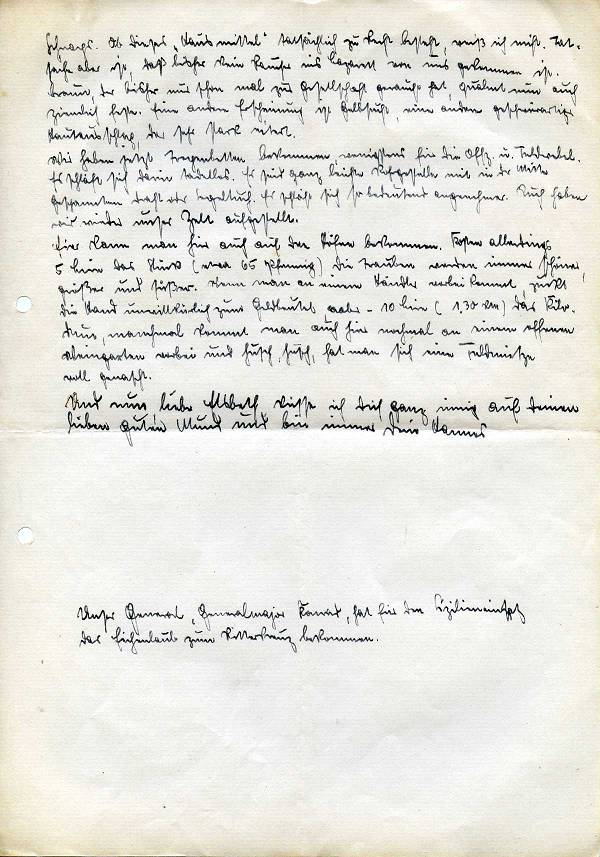 Schnaps. Ob dieses „Hausmittel“ tatsächlich zu Recht besteht, weiß ich nicht. Tat-
sache aber ist, daß bisher kein Raucher ins Lazarett von uns gekommen ist.
Braun, der bisher nur schon mal zur Gesellschaft geraucht hat, qualmt nun auch
ziemlich feste. Eine andere Erscheinung ist Gelbsucht, eine andere geschwürartiger
Hautausschlag, der sehr stark eitert.
Wir haben jetzt Tragenbetten bekommen, wenigstens für die Offz. u. Feldwebel.
Es schläft sich darin tadellos. Es sind ganz leichte Rohrgestelle mit in der Mitte
gespanntem Draht oder Segeltuch. Es schläft sich so bedeutend angenehmer. Auch haben
wir wieder unser Zelt aufgestellt.
Eier kann man hier auch auf den Höfen bekommen. Kosten allerdings
5 Lire das Stück (etwa 65 Pfennig) Die Trauben werden immer schöner,
größer und süßer. Wenn man an einem Händler vorbei kommt, zuckt
die Hand unwillkürlich zum Geldbeutel 8 - 10 Lire (1,30 RM) das Kilo.
Nun, manchmal kommt man auch hier nochmal an einem offenen
Weingarten vorbei und husch, husch, hat man sich eine Feldmütze
voll genascht.
Und nun liebe Elsbeth küsse ich Dich ganz innig auf Deinen
lieben guten Mund und bin immer Dein Hannes
Unser General, Generalmajor Conrad, hat für den Sizilieneinsatz
das Eichenlaub zum Ritterkreuz bekommen.